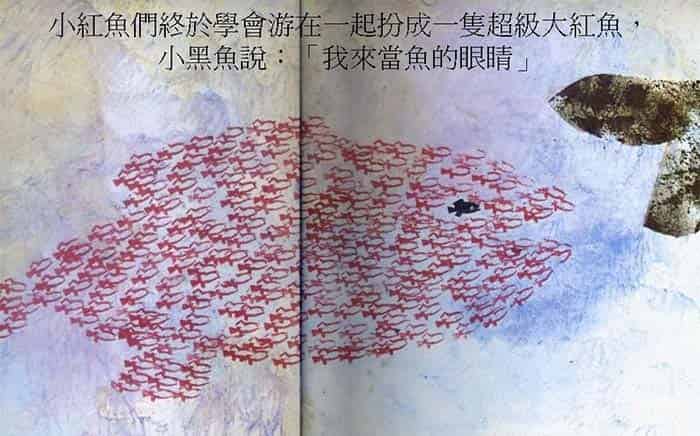 小紅魚們終於學會游在一起扮成一隻超級大紅魚，
小黑魚說：「我來當魚的眼睛」